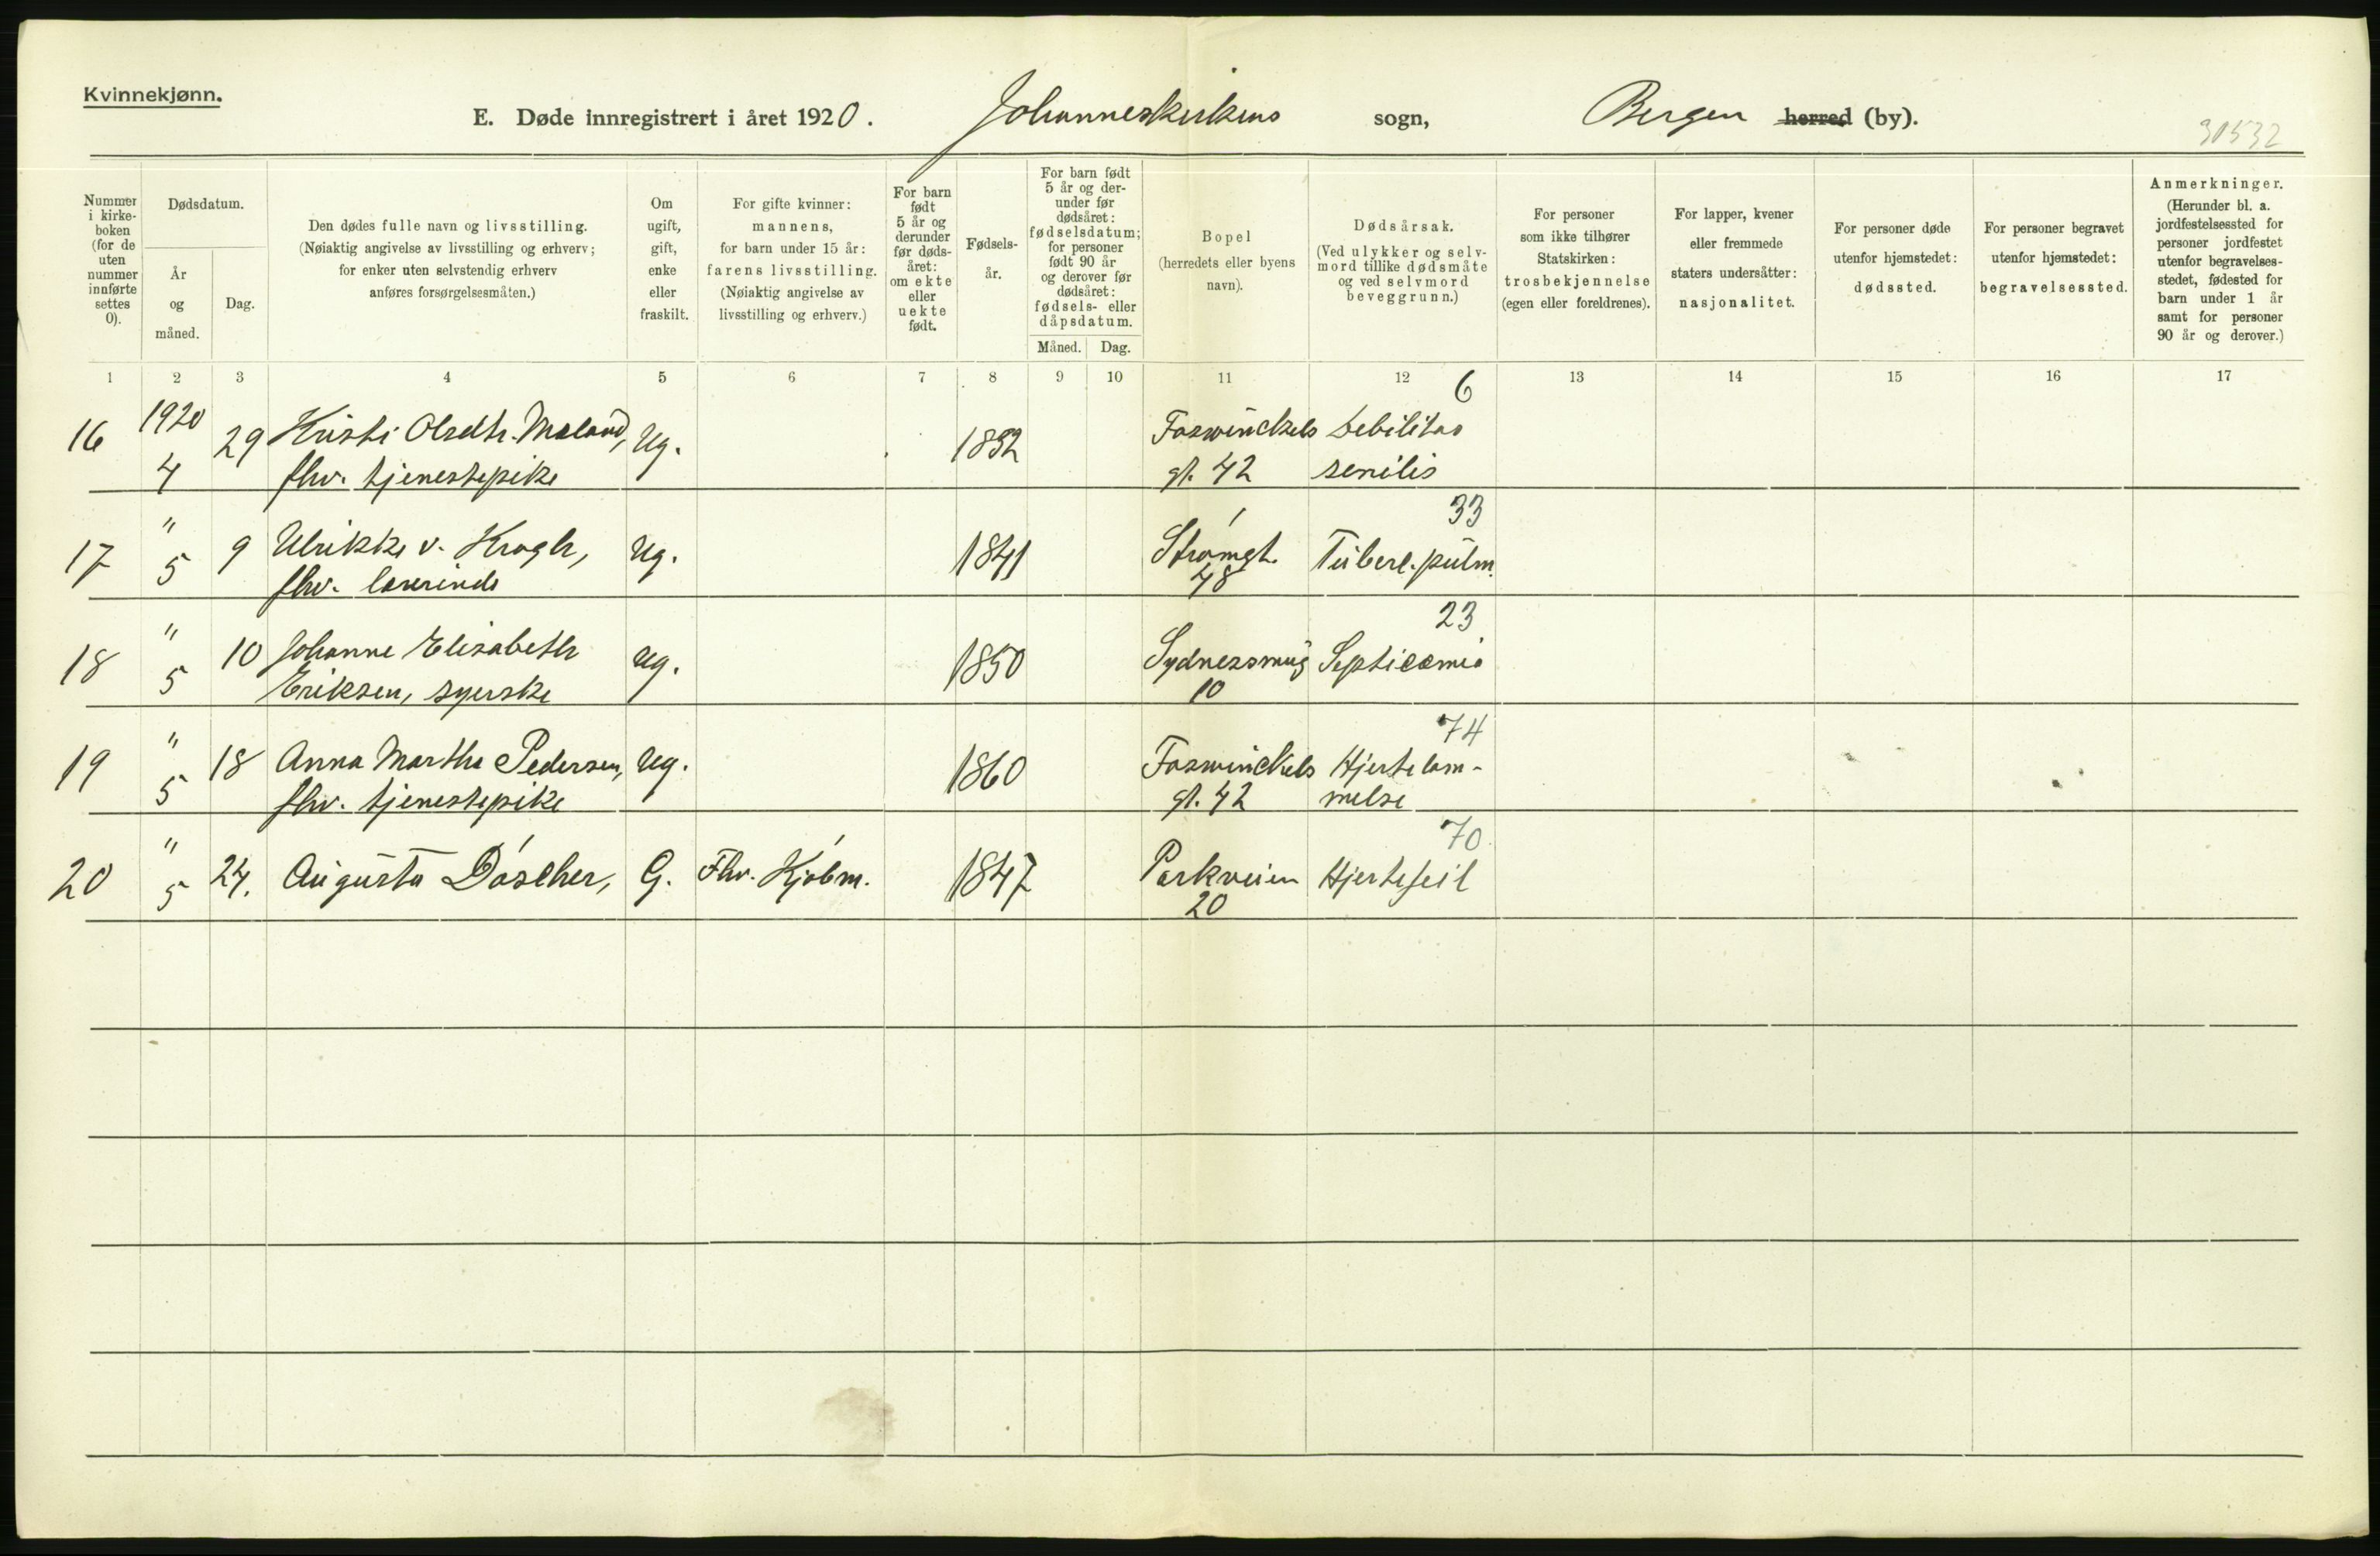 Kvinnekjønn.
E. Døde innregistrert i året 1920. Johanneskirkens sogn, Bergen herred (by).
30532
Nummer i kirkeboken (for de uten nummer innførte settes 0).
Dødsdatum.
År og måned.
Dag.
Den dødes fulle navn og livsstilling.
(Nøiaktig angivelse av livsstilling og erhverv;
for enker uten selvstendig erhverv
anføres forsørgelsesmåten.)
Om
ugift,
gift,
enke
eller
fraskilt.
For gifte kvinner:
mannens,
for barn under 15 år:
farens livsstilling.
(Nøiaktig angivelse av
livsstilling og erhverv.)
For barn
født
5 år og
derunder
før døds-
året:
om ekte
eller
uekte
født.
Fødsels-
år.
For barn født
5 år og der-
under før
dødsåret:
fødselsdatum;
for personer
født 90 år
og derover før
dødsåret:
fødsels- eller
dåpsdatum.
Måned. Dag.
Bopel
(herredets eller byens
navn).
Dødsårsak.
(Ved ulykker og selv-
mord tillike dødsmåte
og ved selvmord
beveggrunn.)
For personer
som ikke tilhører
Statskirken:
trosbekjennelse
(egen eller foreldrenes).
For lapper, kvener
eller fremmede
staters undersåtter:
nasjonalitet.
For personer døde
utenfor hjemstedet:
dødssted.
For personer begravet
utenfor hjemstedet:
begravelsessted.
Anmerkninger.
(Herunder bl. a.
jordfestelsessted for
personer jordfestet
utenfor begravelses-
stedet, fødested for
barn under 1 år
samt for personer
90 år og derover.)
1 2 3 4 5 6 7 8 9 10 11 12 13 14 15 16 17
6
16 1920 29 Kristi Olsdtr. Maland, Ug. 1832 Foswinckels Debilitas
4 fhv. tjenestepike gt. 42 senilis
33
17 " 9 Ulrikke v. Krogh, Ug. 1841 Strømgt. Tuberc. pulm.
5 fhv. lærerinde 48
23
18 " 10 Johanne Elisabeth Ug. 1850 Sydnessmug Septicæmia
5 Eriksen, syerske 10
74
19 " 18 Anna Martha Pedersen, Ug. 1860 Foswinckels Hjertelam-
5 fhv. tjenestepike gt. 42 melse
70
20 " 24. Augusta Döscher, G. Fhv. Kjøbm. 1847 Parkveien Hjertefeil
5 20